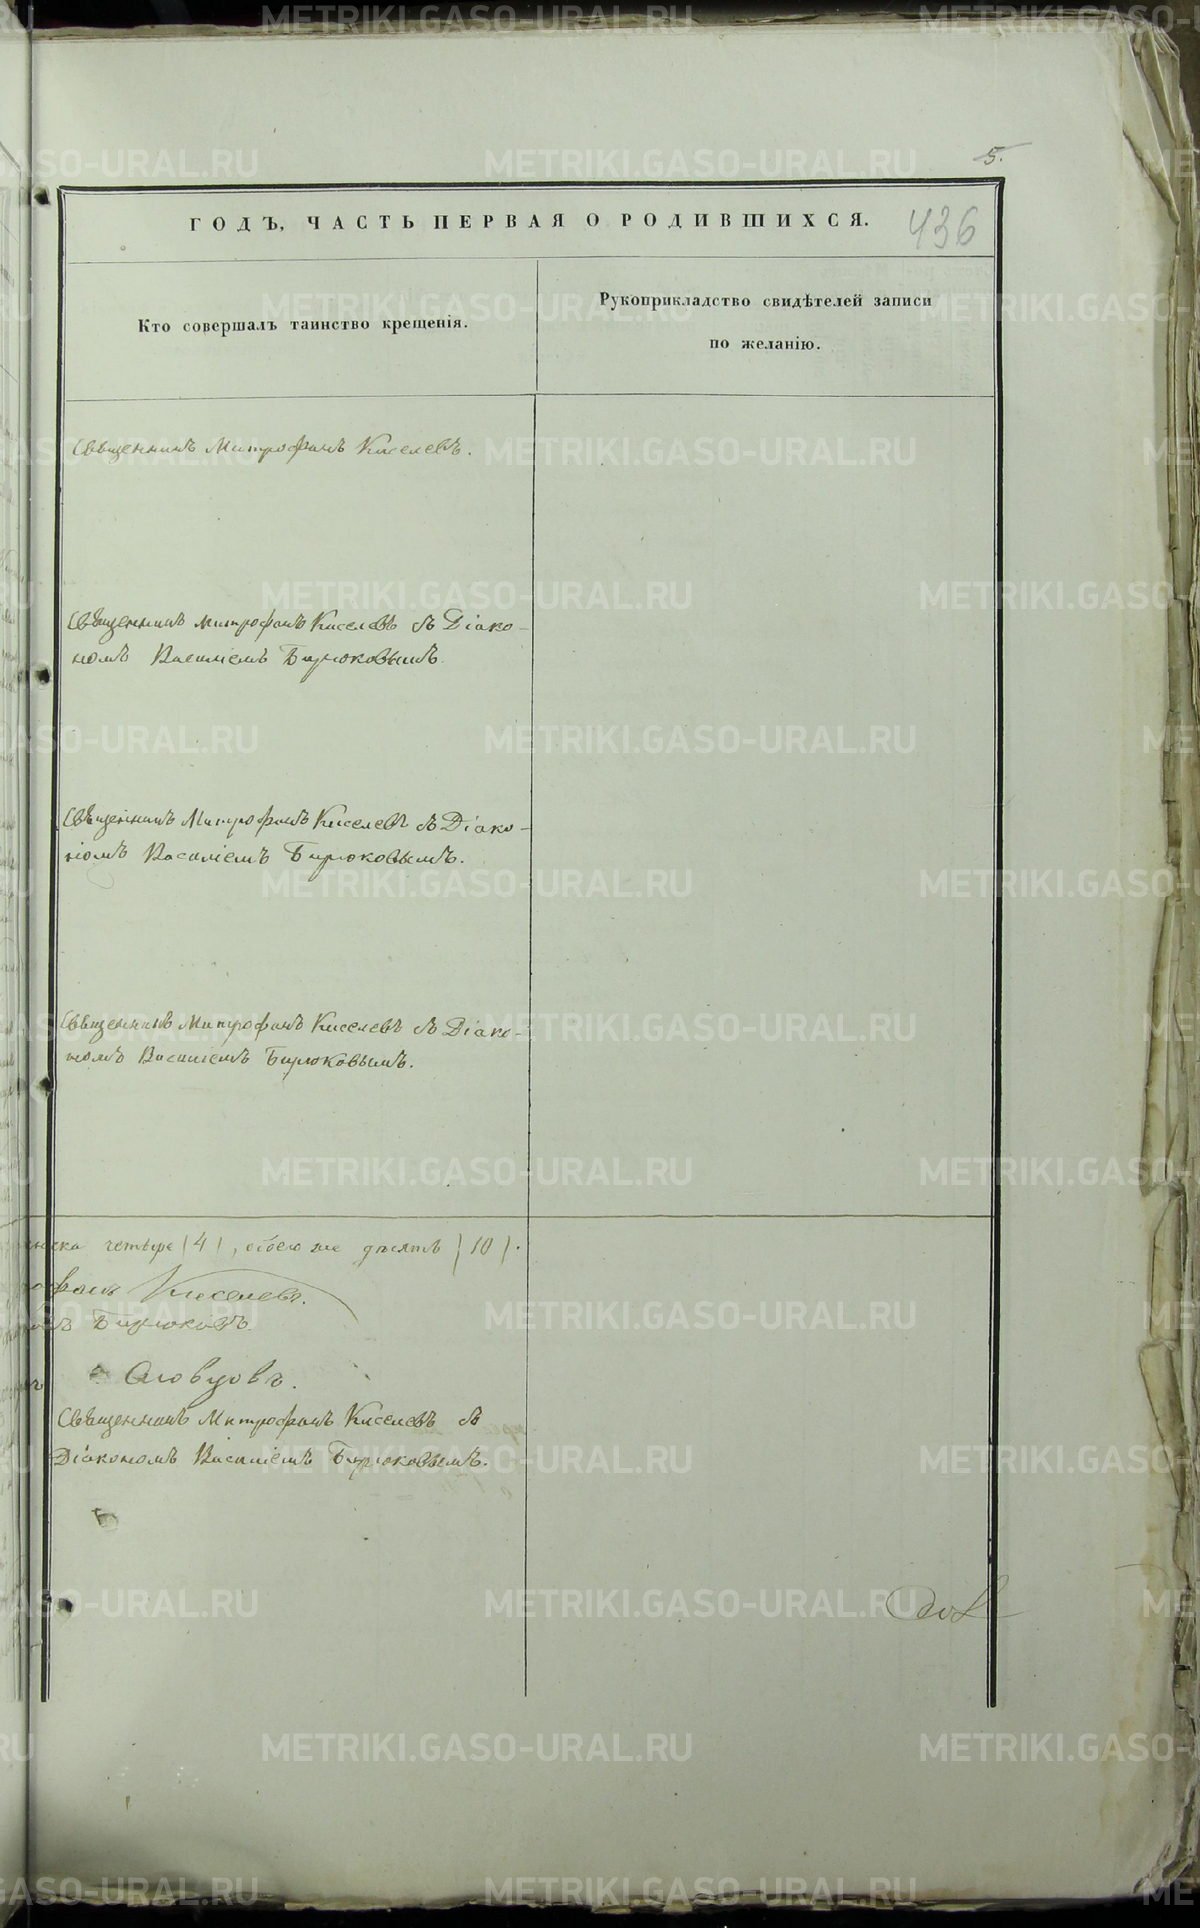 5.
ГОДЪ, ЧАСТЬ ПЕРВАЯ О РОДИВШИХСЯ.
436
Кто совершалъ таинство крещенія.
Рукоприкладство свидѣтелей записи
по желанію.
Священникъ Митрофанъ Киселевъ.
Священникъ Митрофанъ Киселевъ съ Діако-
номъ Василіемъ Бирюковымъ.
Священникъ Митрофанъ Киселевъ съ Діако-
номъ Василіемъ Бирюковымъ.
Священникъ Митрофанъ Киселевъ съ Діако-
номъ Василіемъ Бирюковымъ.
женска четыре (4), обоего же десять (10).
рофанъ Киселевъ.
Бирюковъ
Словцовъ.
Священникъ Митрофанъ Киселевъ съ
Діакономъ Василіемъ Бирюковымъ.
METRIKI.GASO-URAL.RU